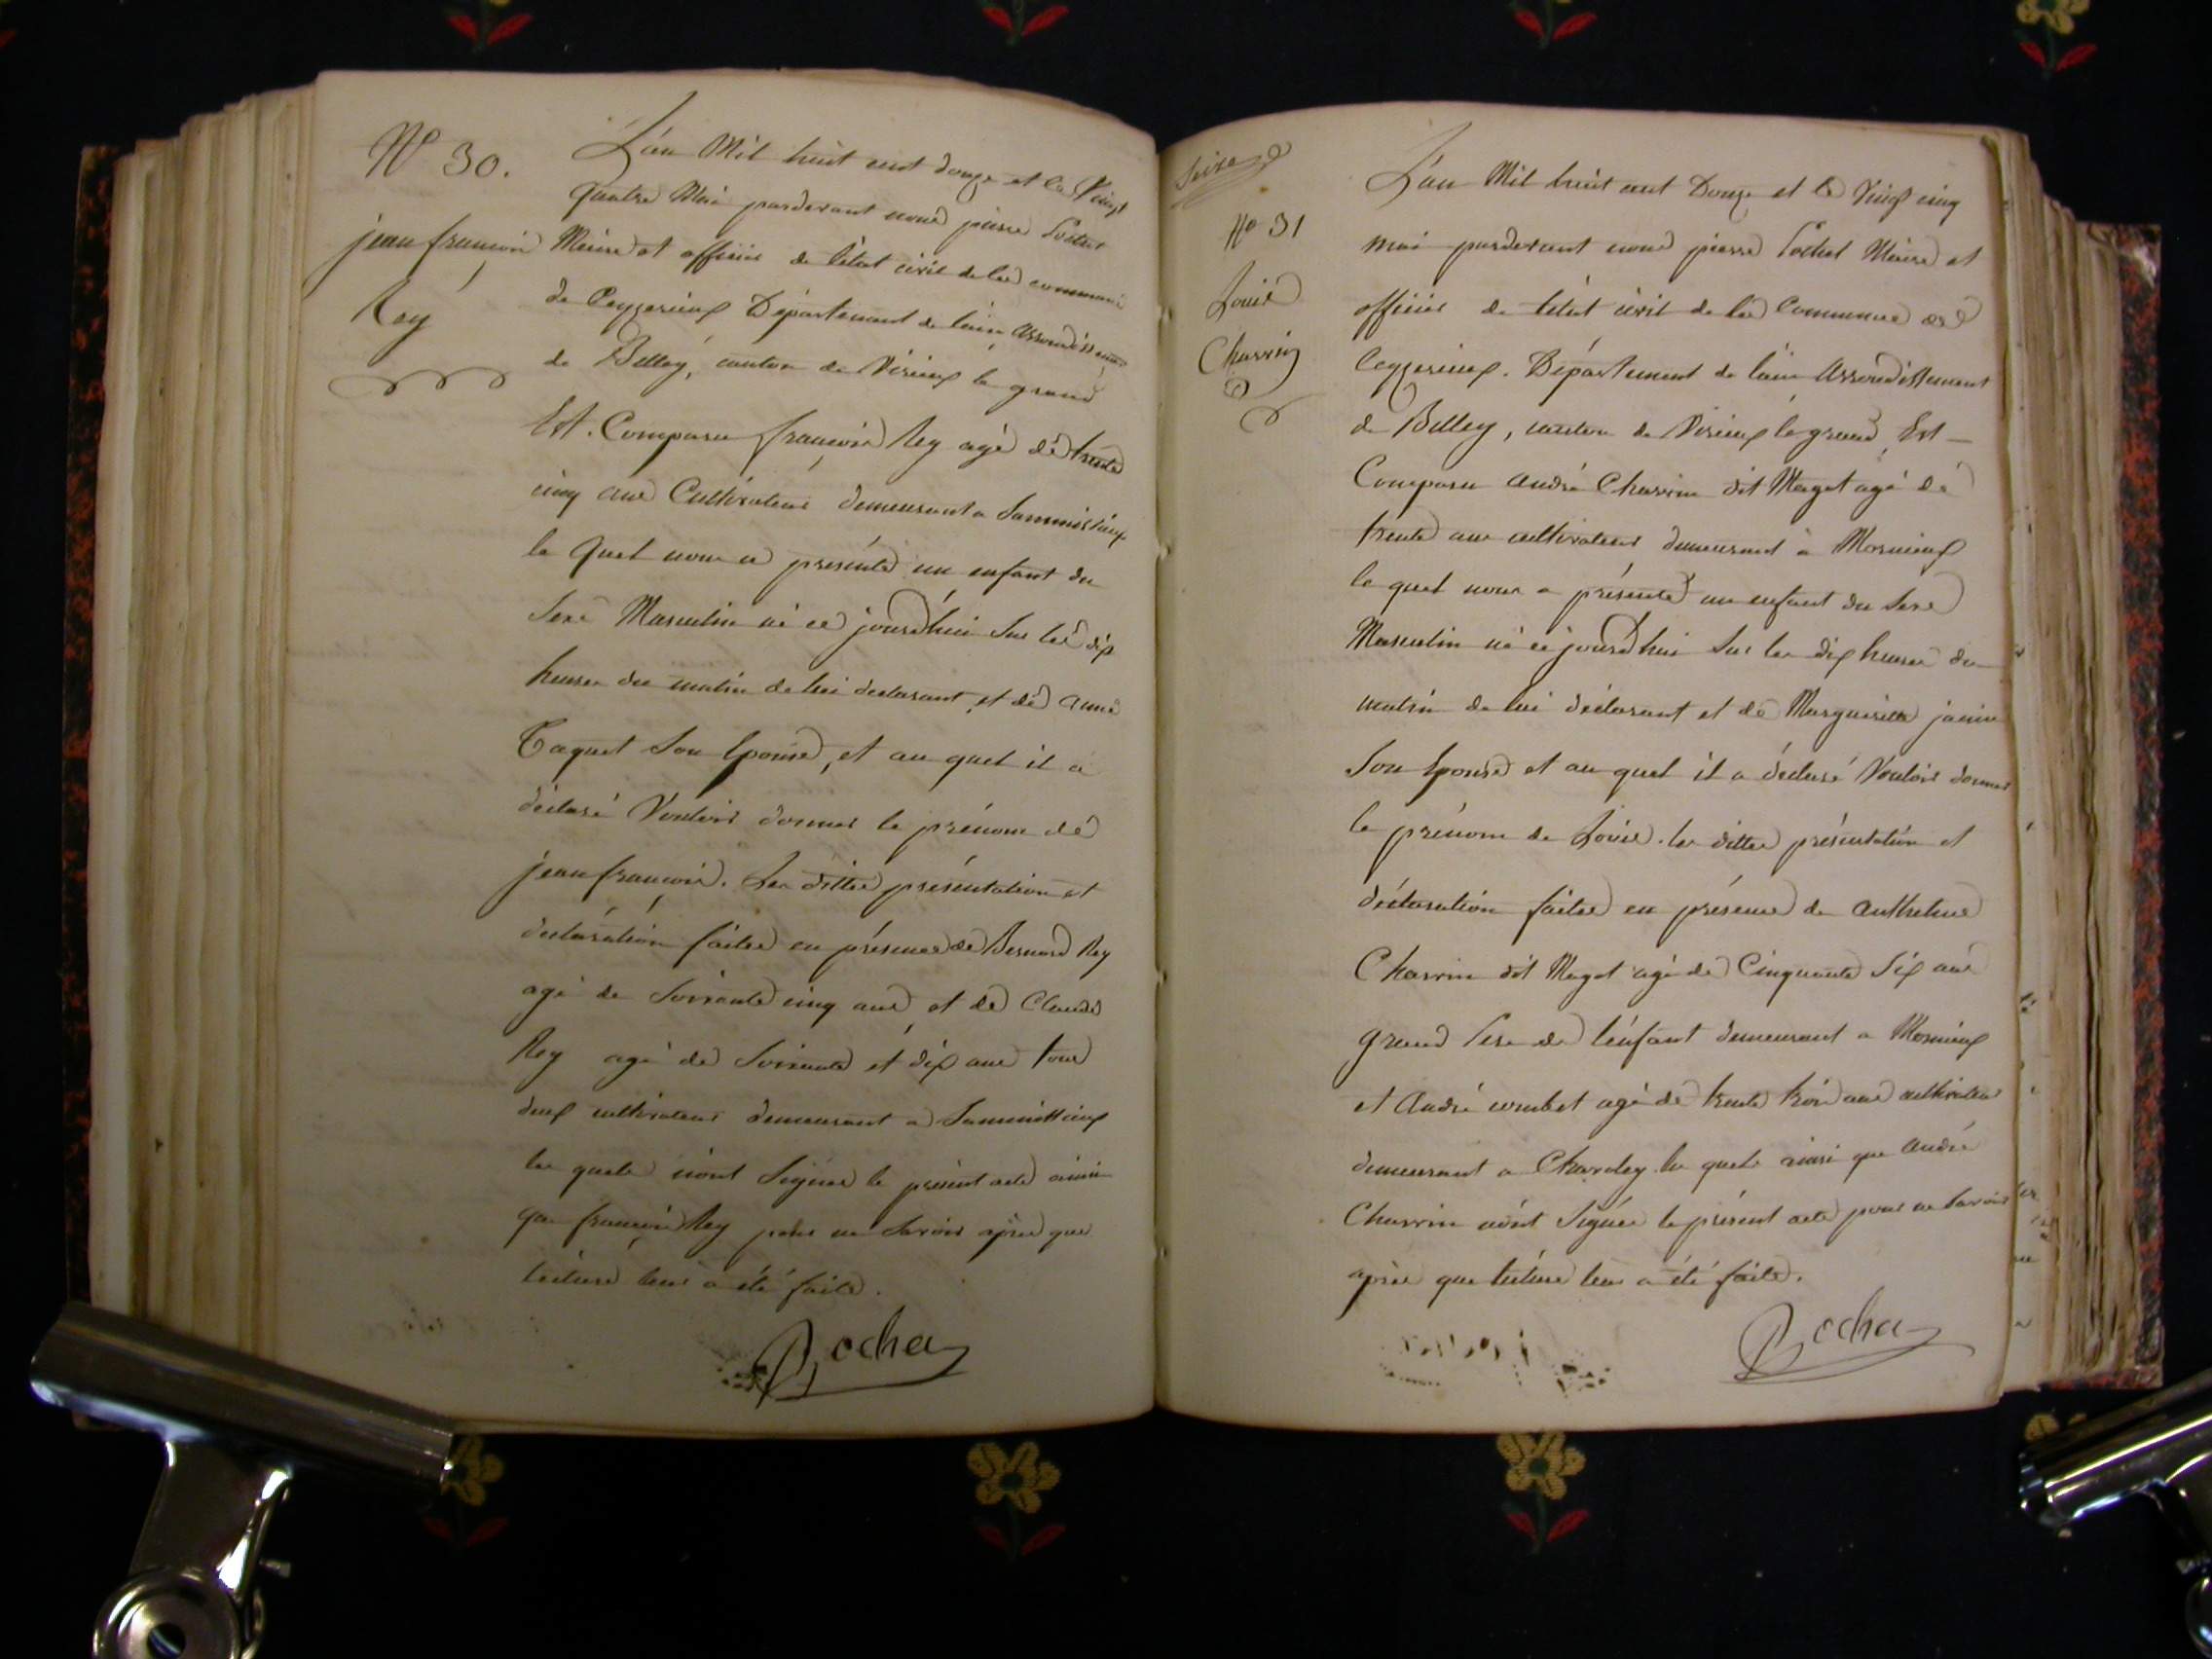 N° 30.
jean françois
Rey
L'an Mil huit cent douze et le Vingt
quatre Mai pardevant nous pierre Rochet
Maire et officier de l'état civil de la commune
de Ceyzerieux Département de lain, Arrondissement
de Belley, canton de Virieux le grand
Est Comparu françois Rey agé de trente
cinq ans Cultivateur demeurant a
le quel nous a présenté un enfant du
Sexe Masculin né ce jourd'hui Sur les dix
heures du matin de lui déclarant et de anne
Taquet Son Epouse, et au quel il a
déclaré Vouloir donner le prénom de
jean françois. Les dittes présentation et
déclaration faites en présence de Bernard Rey
agé de Soixante cinq ans et de Claude
Rey agé de Soixante et dix ans tous
deux cultivateurs demeurant a
les quels n'ont Signés le présent acte ainsi
que françois Rey pour ne Savoir après que
lecture leur a été faite.
Rochet
Seize
N° 31
Louis
Charvin
L'an Mil huit cent Douze et le Vingt cinq
mai pardevant nous pierre Rochet Maire et
officier de l'état civil de la Commune de
Ceyzerieux. Département de lain Arrondissement
de Belley, canton de Virieux le grand, Est
Comparu andré Charvin dit Magot agé de
trente ans cultivateur demeurant à Mornieux
le quel nous a présenté un enfant du Sexe
Masculin né ce jourd'hui Sur les dix heures du
matin de lui déclarant et de Margueritte janin
Son Epouse et au quel il a déclaré Vouloir donner
le prénom de Louis. les dittes présentation et
déclaration faites en présence de anthelme
Charvin dit Magot agé de Cinquante Six ans
grand Pere de l'enfant demeurant a Mornieux
et André combet agé de trente trois ans cultivateur
demeurant a Chavoley les quels ainsi que André
Charvin n'ont Signés le présent acte pour ne Savoir
après que lecture leur a été faite.
Rochet